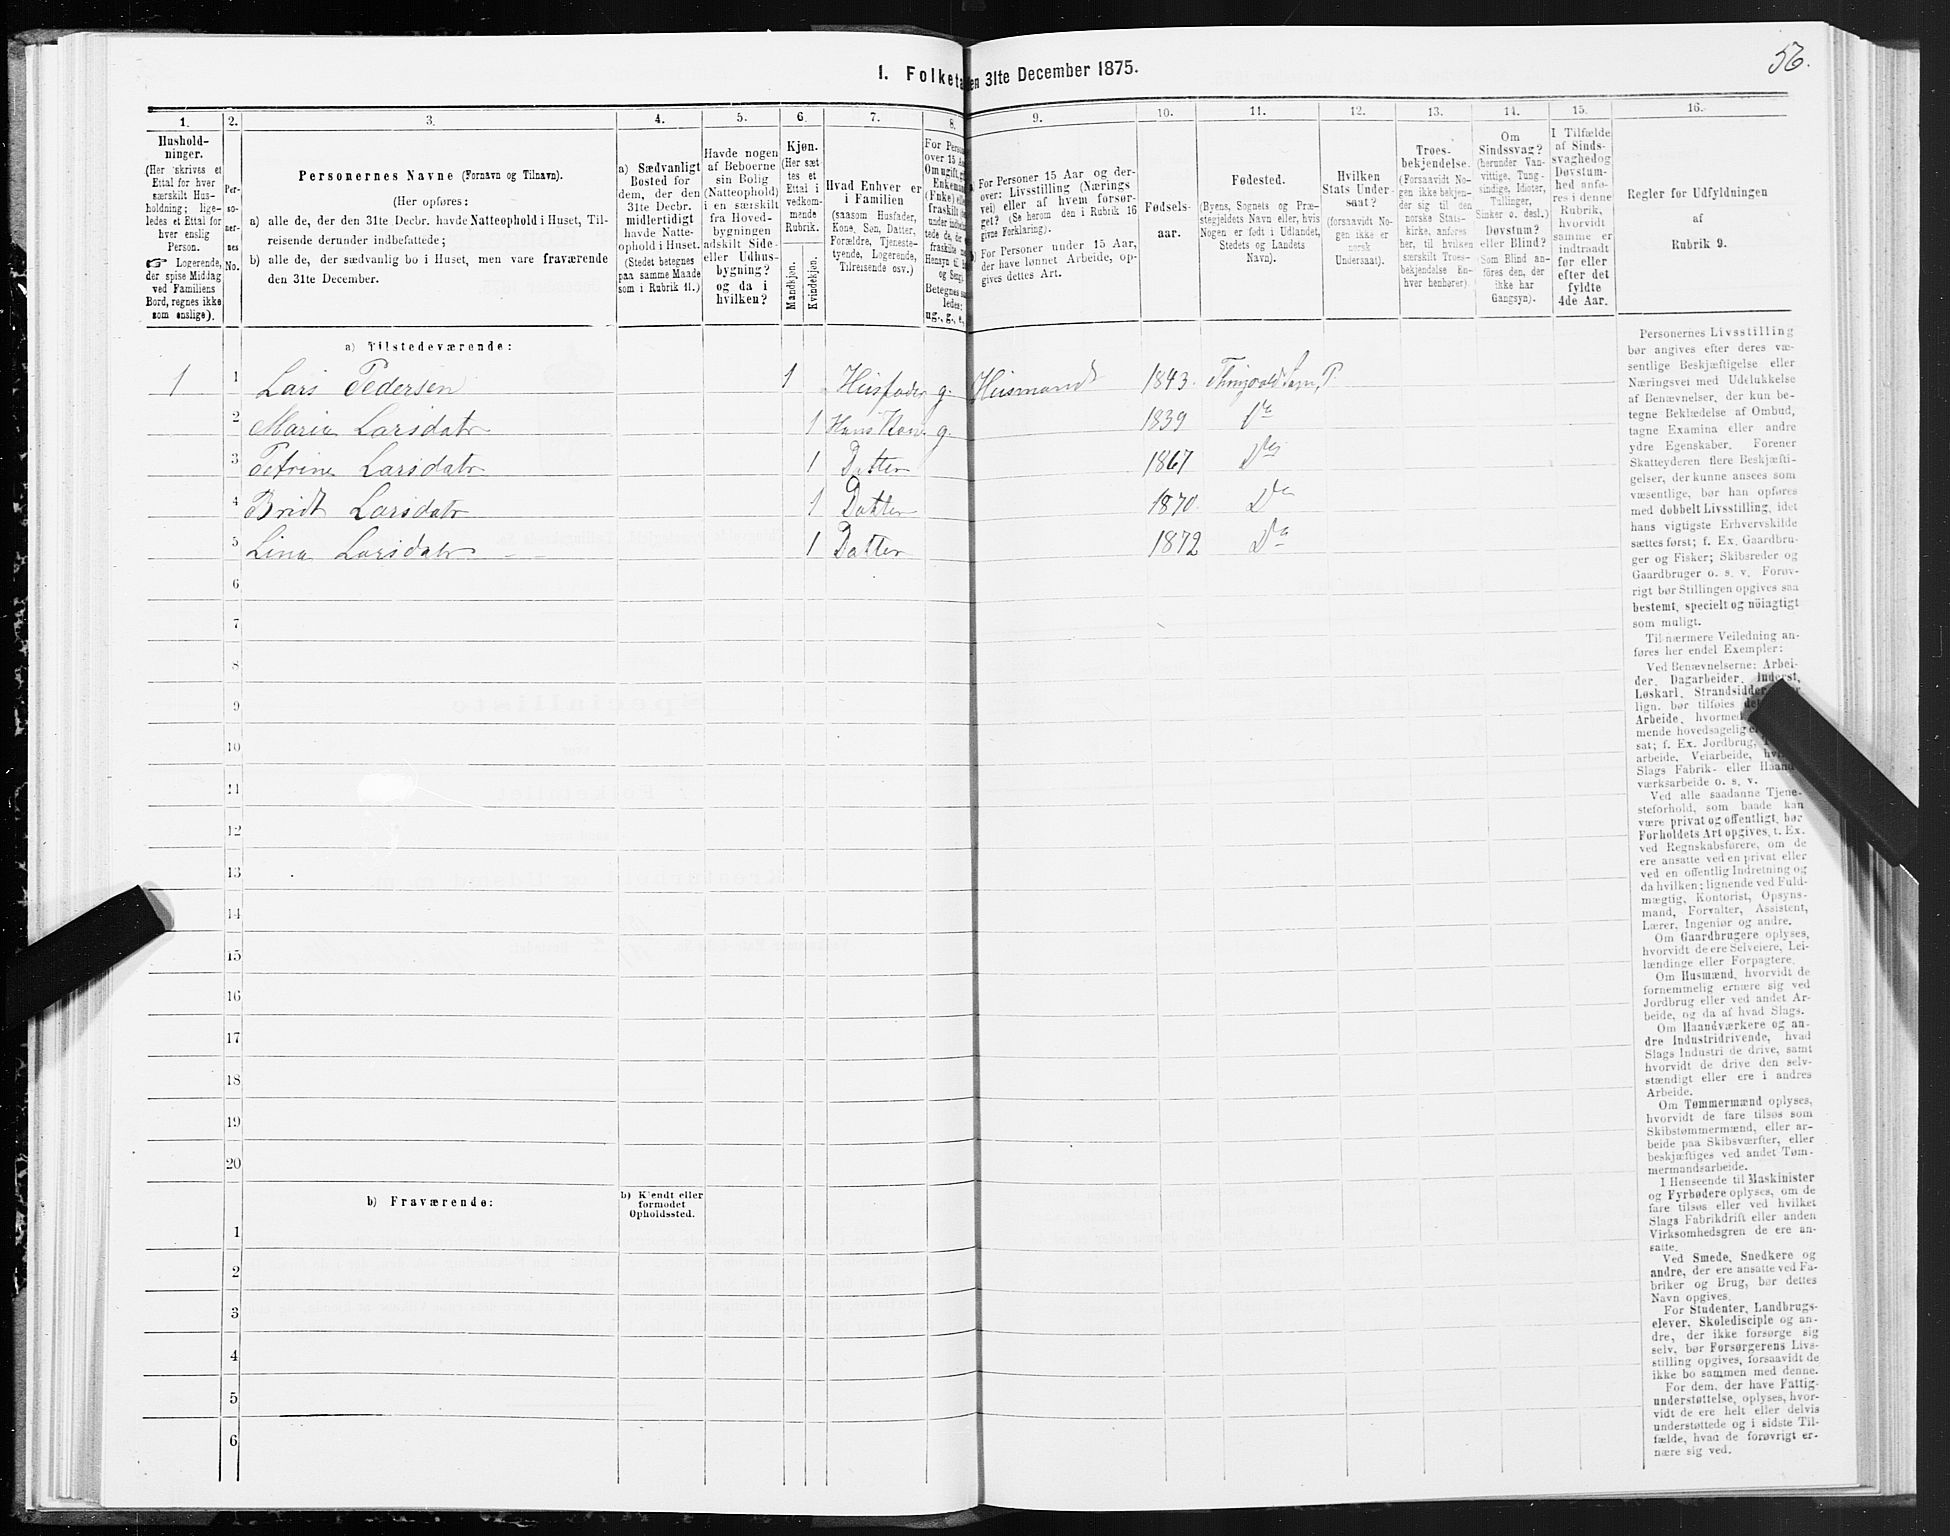 56.
1. Folketæ en 31te December 1875.
1. 2. 3. 4. 5. 6. 7. 8. 9. 10. 11. 12. 13. 14. 15. 16.
Hushold-
ninger.
(Her skrives et
Ettal for hver
særskilt Hus-
holdning; lige-
ledes et Ettal for
hver enslig
Person.
☞ Logerende,
der spise Middag
ved Familiens
Bord, regnes ikke
som enslige).
Per-
so-
ner-
nes
No.
Personernes Navne (Fornavn og Tilnavn).
(Her opføres:
a) alle de, der den 31te Decbr. havde Natteophold i Huset, Til-
reisende derunder indbefattede;
b) alle de, der sædvanlig bo i Huset, men vare fraværende
den 31te December.
a) Sædvanligt
Bosted for
dem, der den
31te Decbr.
midlertidigt
havde Natte-
ophold i Huset.
(Stedet betegnes
paa samme Maade
som i Rubrik 11.)
Havde nogen
af Beboerne
sin Bolig
(Natteophold)
i en særskilt
fra Hoved-
bygningen
adskilt Side-
eller Udhus-
bygning?
og da i
hvilken?
Kjøn.
(Her sæt-
tes et
Ettal i
vedkom-
mende
Rubrik.
Mandkjøn.
Kvindekjøn.
Hvad Enhver er
i Familien
(saasom Husfader,
Kone, Søn, Datter,
Forældre, Tjeneste-
tyende, Logerende,
Tilreisende osv.)
For Perso
over 15 Aa
Om ugift, gi
Enkema
(Enke) el
fraskilt
Betegnes s
ledes:
ug., g., e.,
a) For Personer 15 Aar og der-
over: Livsstilling (Nærings
vei) eller af hvem forsør-
get? (Se herom den i Rubrik 16
givne Forklaring).
b) For Personer under 15 Aar,
der have lønnet Arbeide, op-
gives dettes Art.
Fødsels-
aar.
Fødested.
(Byens, Sognets og Præ-
stegjeldets Navn eller, hvis
Nogen er født i Udlandet,
Stedets og Landets
Navn).
Hvilken
Stats Under-
saat?
(forsaavidt No-
gen ikke er
norsk
Undersaat).
Troes-
bekjendelse.
(Forsaavidt No-
gen ikke bekjen-
der sig til den
norske Stats-
kirke, anføres
her, til hvilken
særskilt Troes-
bekjendelse En-
hver henhører).
Om
Sindssvag?
(herunder Van-
vittige, Tung-
sindige, Idioter,
Tullinger,
Sinker o. desl.)
Døvstum?
eller Blind?
(Som Blind an-
føres den, der
ikke har
Gangsyn).
I Tilfælde
af Sinds-
svaghedog
Døvstum-
hed anfø-
res i denne
Rubrik,
hvorvidt
samme er
indtraadt
før eller
efter det
fyldte
4de Aar.
Regler for Udfyldningen
af
Rubrik 9.
a) Tilstedeværende:
1 1 Lars Pedersen 1 Husfader g. Husmand 1843. P.
2 Maria Larsdatr 1 Hans Kone g. 1839 Do
3 Petrine Larsdatr 1 Datter 1867 Do
4 Bridt Larsdatr 1 Datter 1870 Do
5 Lina Larsdatr 1 Datter 1872 Do
6
7
8
9
10
11
12
13
14
15
16
17
18
19
20
b) Fraværende:
b) Kjendt eller
formodet
Opholdssted.
1
2
3
4
5
6
Personernes Livsstilling
bør angives efter deres væ-
sentlige Beskjæftigelse eller
Næringsvei med Udelukkelse
af Benævnelser, der kun be-
tegne Beklædelse af Ombud,
tagne Examina eller andre
ydre Egenskaber. Forener
Skatteyderen flere Beskjæfti-
gelser, der kunne ansees som
væsentlige, bør han opføres
med dobbelt Livsstilling, idet
hans vigtigste Erhvervskilde
sættes først; f. Ex. Gaardbru-
ger og Fisker; Skibsreder og
Gaardbruger o. s. v. Forøv-
rigt bør Stillingen opgives saa
bestemt, specielt og nöiagtigt
som muligt.
Til nærmere Veiledning an-
føres her endel Exempler:
Ved Benævnelserne: Arbei-
der, Dagarbeider, Inderst,
Løskarl, Strandsidder
lign. bør tilføies
Arbeide, hvormed
mende hovedsagelig er
sat; f. Ex. Jordbrug,
arbeide, Veiarbeide,
Slags Fabrik- eller Haand-
værksarbeide o. s. v.
Ved alle saadanne Tjene-
steforhold, som baade kan
være privat og offentligt, bør
Forholdets Art opgives, t. Ex.
ved Regnskabsførere, om de
ere ansatte ved en privat eller
ved en offentlig Indretning og
da hvilken; lignende ved Fuld-
mægtig, Kontorist, Opsyns-
mand, Forvalter, Assistent,
Lærer, Ingeniør og andre.
Om Gaardbrugere oplyses,
hvorvidt de ere Selveiere, Lei-
lændinge eller Forpagtere.
Om Husmænd, hvorvidt de
fornemmelig ernære sig ved
Jordbrug eller ved andet Ar-
beide, og da af hvad Slags.
Om Haandværkere og an-
dre Industridrivende, hvad
Slags Industri de drive, samt
hvorvidt de drive den selv-
stændigt eller ere i andres
Arbeide.
Om Tømmermænd oplyses,
hvorvidt de fare tilsøs som
Skibstømmermænd, eller ar-
beide paa Skibsværfter, eller
beskjæftiges ved andet Tøm-
mermandsarbeide.
I Henseende til Maskinister
og Fyrbødere oplyses, om de
fare tilsøs eller ved hvilket
Slags Fabrikdrift eller anden
Virksomhedsgren de ere an-
satte.
Ved Smede, Snedkere og
andre, der ere ansatte ved Fa-
briker og Brug, bør dettes
Navn opgives.
For Studenter, Landbrugs-
elever, Skoledisciple og an-
dre, der ikke forsørge sig
selv, bør Forsørgerens Livs-
stilling opgives, forsaavidt de
ikke bo sammen med denne.
For dem, der have Fattig-
understøttelse, oplyses, hvor-
vidt de ere helt eller delvis
understøttede og i sidste Til-
fælde, hvad de forøvrigt er-
nære sig ved.